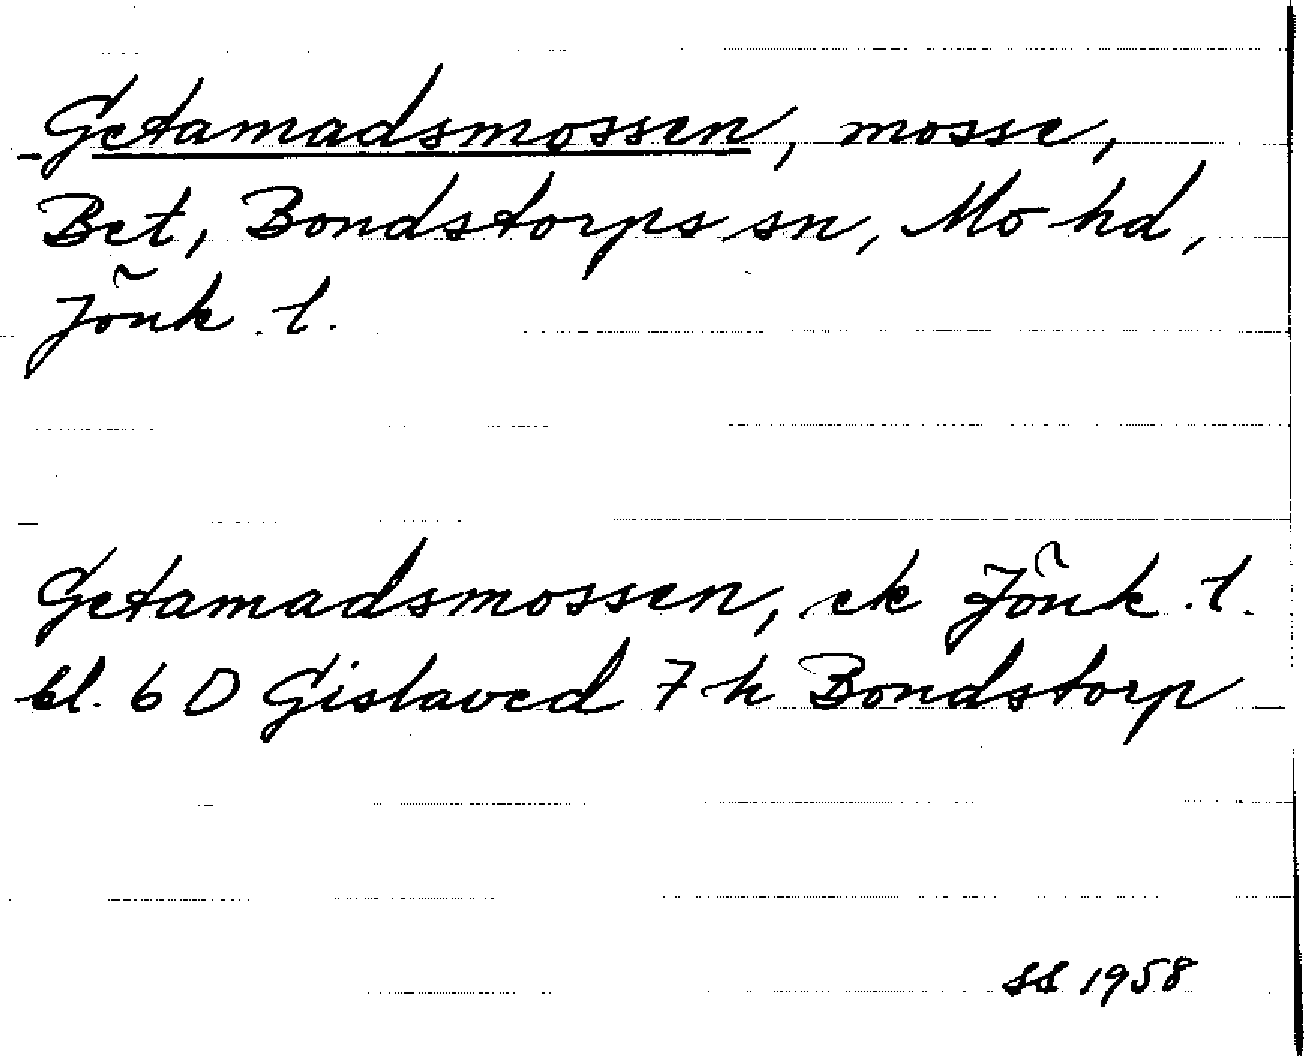 Getamadsmossen, mosse,
Bet, Bondstorps sn, Mo hd,
Jönk l.
Getamadsmossen, ek Jönk l.
bl. 6 D Gislaved 7 h Bondstorp
SS 1958